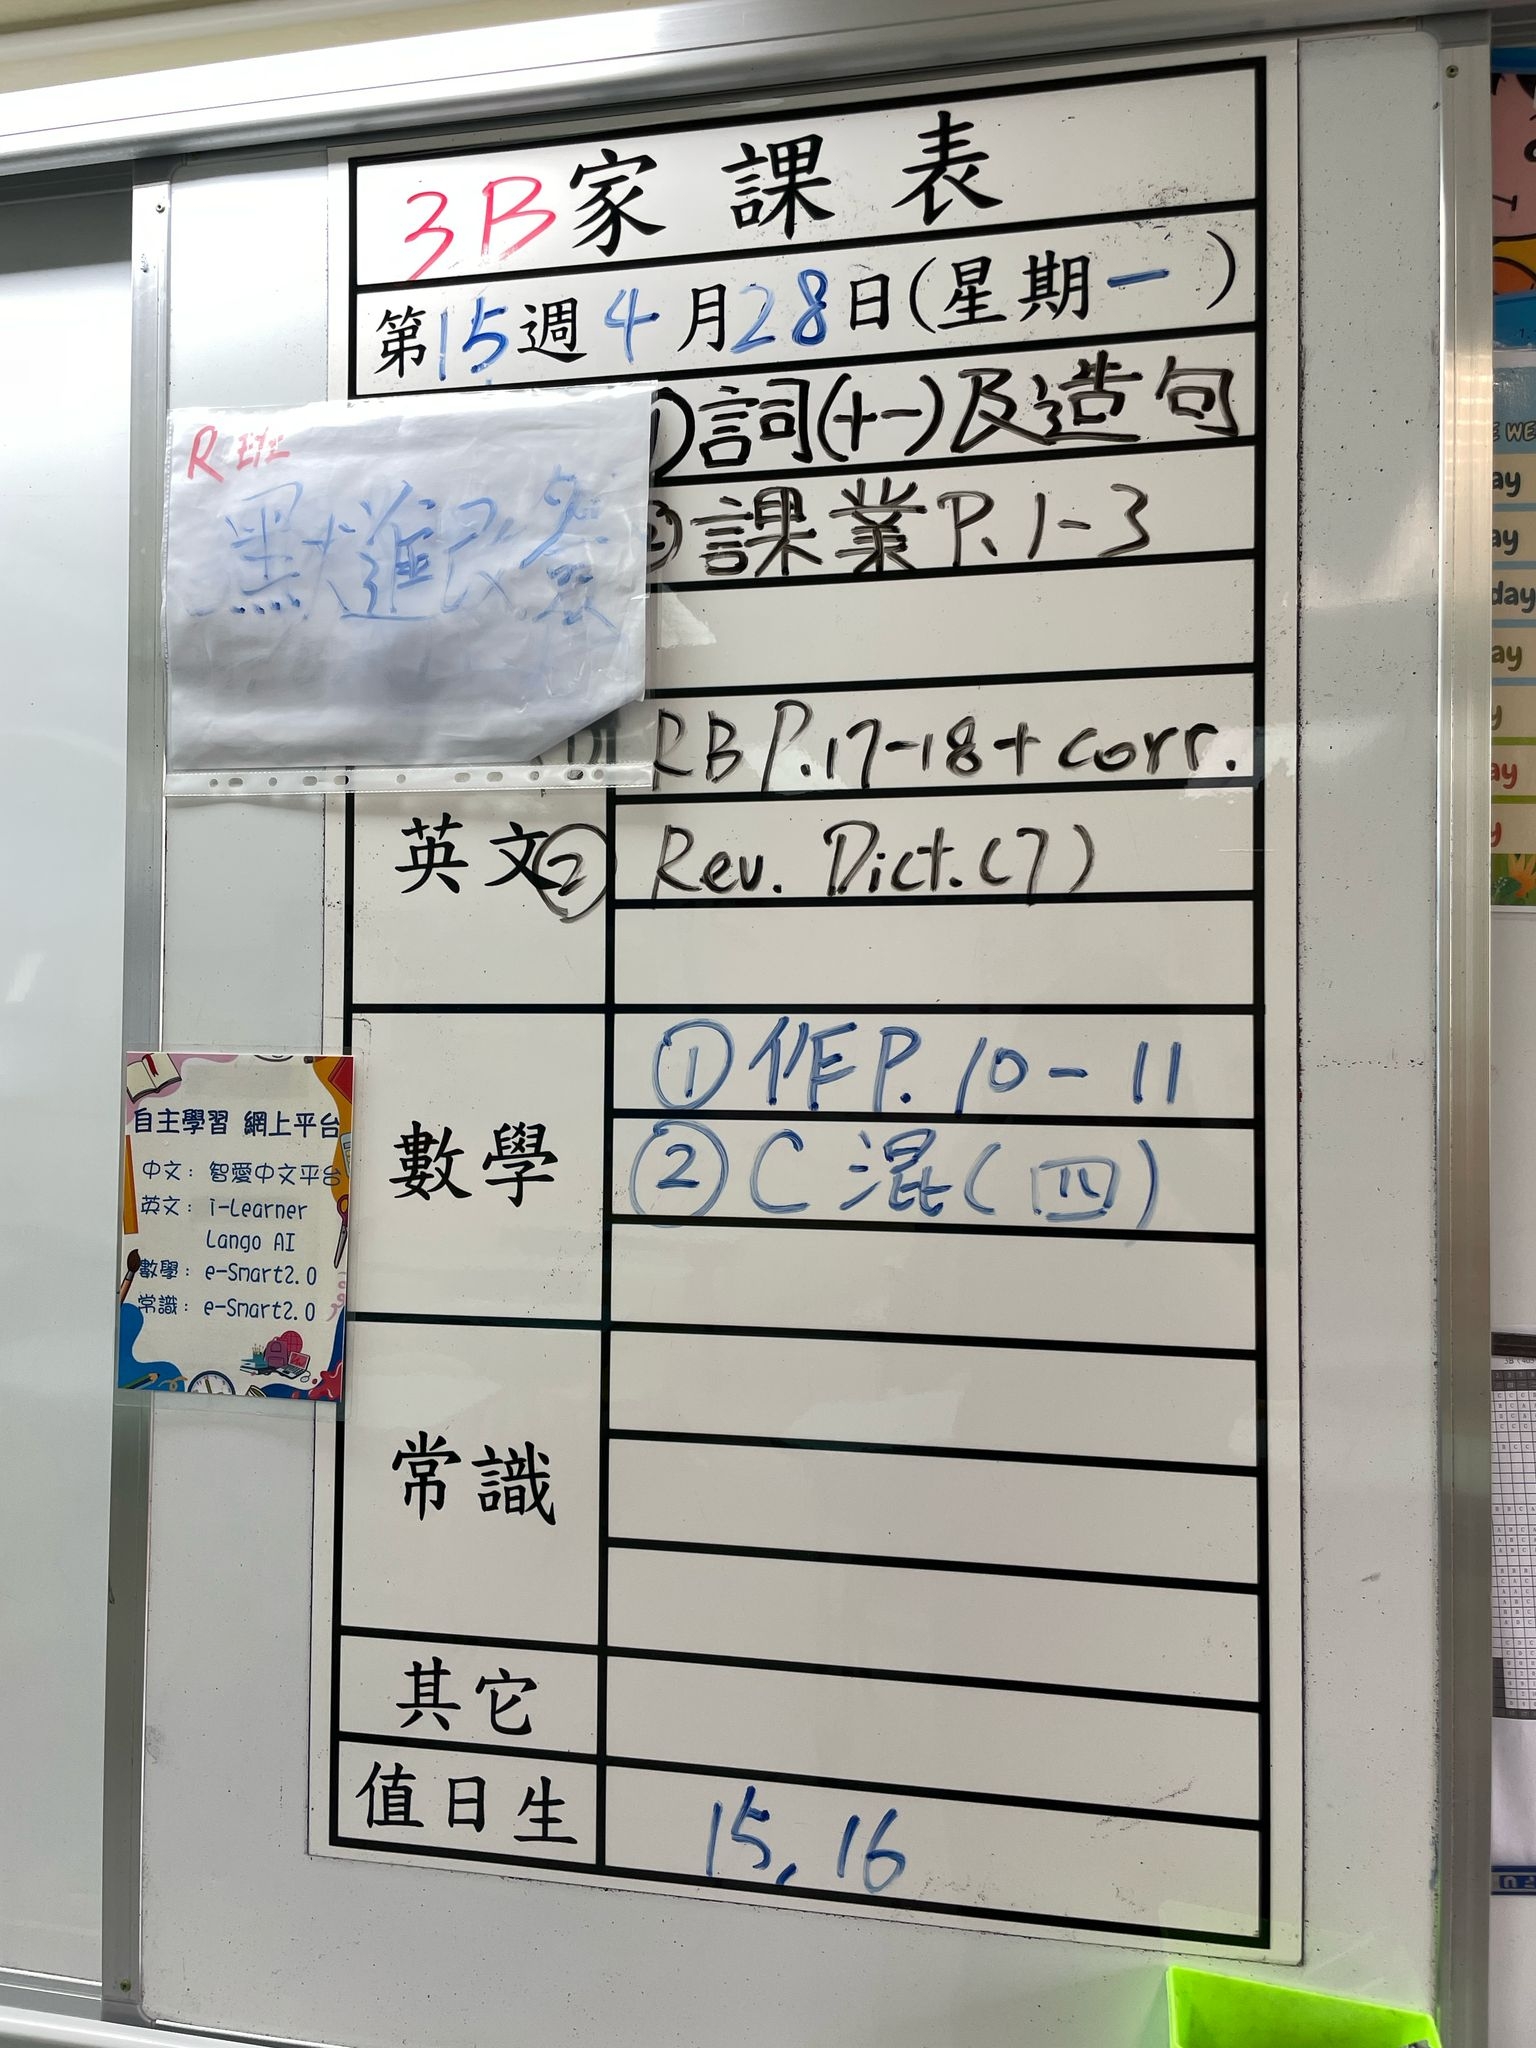 3B家課表
第15週4月28日(星期一)
①詞(十一)及造句
②課業P.1-3
R班
默進改簽
① RB P.17-18+corr.
英文② Rev. Dict.(7)
數學
①作P.10-11
②C混(四)
自主學習 網上平台
中文：智愛中文平台
英文：i-Learner
Lango AI
數學：e-Smart2.0
常識：e-Smart2.0
常識
其它
值日生
15, 16